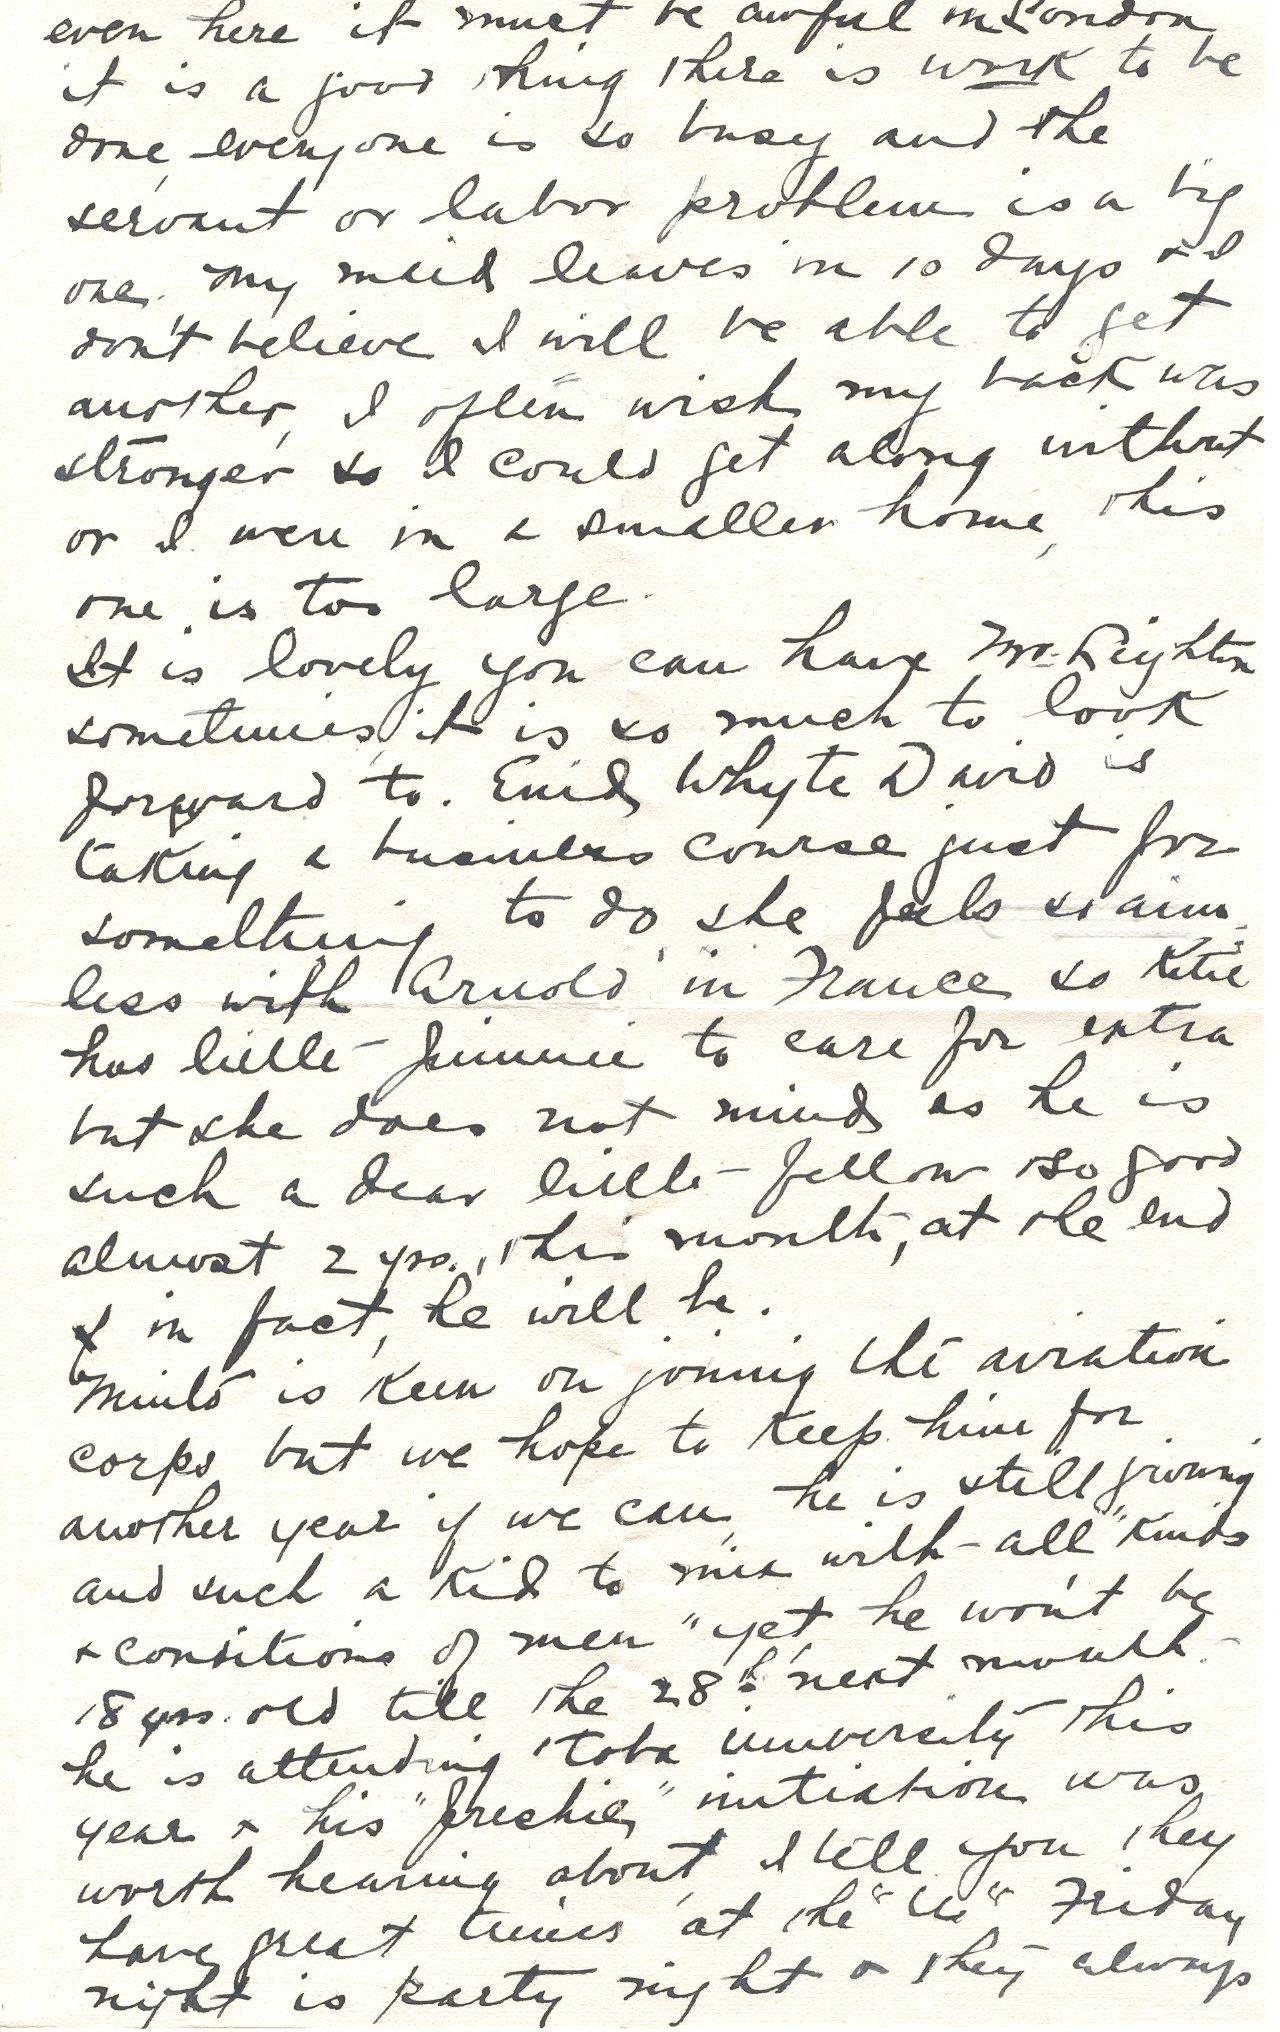 even here it must be awful in London
it is a good thing there is work to be
done, everyone is so busy and the
servant or labor problem is a big
one. My maid leaves in 10 days & I
don't believe I will be able to get
another, I often wish my back was
stronger so I could get along without
or I were in a smaller home, this
one is too large.
It is lovely you can have Mrs. Leighton
sometimes, it is so much to look
forward to. Enid Whyte David is
taking a business course just for
something to do, she feels so aim
less with Arnold in France so Katie
has little Jimmie to care for extra
but she does not mind as he is
such a dear little fellow & so good
almost 2 yrs., this month, at the end
of in fact, he will be.
is keen on joining the aviation
corps but we hope to keep him for
another year if we can, he is still growing
and such a kid to mix with "all kinds
& conditions of men" yet, he won't be
18 yrs. old till the 28th next month.
he is attending 'Toba university this
year & his "freshie" initiation was
worth hearing about, I tell you they
have great times at the "U" Friday
night is party night & they always